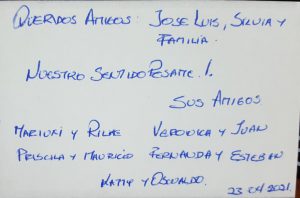 QUERIDOS AMIGOS: JOSE LUIS, SILVIA Y
FAMILIA.
NUESTRO SENTIDO PESAME!.
SUS AMIGOS.
MARIUXI Y VERONICA Y JUAN
PRISCILA Y MAURICIO FERNANDA Y ESTEBAN
KATTY Y OSWALDO.
23 04 2021.